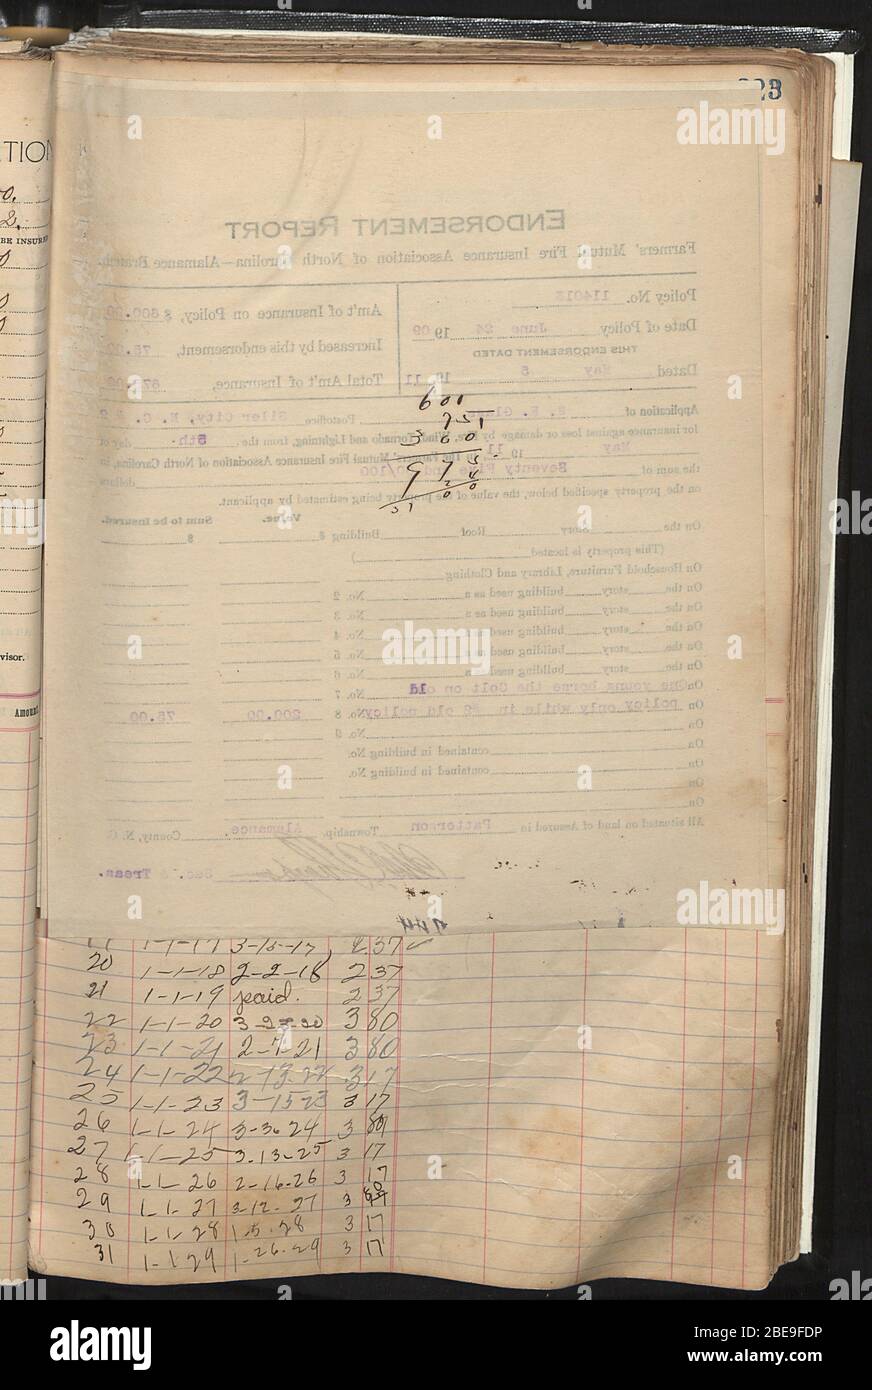 TION
BE INSURED
visor.
Amount
ENDORSEMENT REPORT
Farmers' Mutual Fire Insurance Association of North Carolina—Alamance Branch.
Policy No. 114013 Am't of Insurance on Policy, $ 600.00
Date of Policy June 24 19 09 Increased by this endorsement, 75.00
THIS ENDORSEMENT DATED
Dated May 5 19 11 Total Am't of Insurance, 675.00
601
751
Application of Postoffice Siler City, N. C.
for insurance against loss or damage by Fire, Wind, Tornado and Lightning, from the 5th day of
May 19 11, in the Farmers' Mutual Fire Insurance Association of North Carolina, in
the sum of Seventy Five and 00/100 dollars
on the property specified below, the value of the property being estimated by applicant.
Value. Sum to be Insured.
On the Story Roof Building $ $
(This property is located )
On Household Furniture, Library and Clothing
On the story building used as a No. 2
On the story building used as a No. 3
On the story building used as a No. 4
On the story building used as a No. 5
On the story building used as a No. 6
On One young horse the Colt on old No. 7
On policy only while in #2 old policy No. 8 200.00 75.00
On No. 9
On contained in building No.
On contained in building No.
On
On
All situated on land of Assured in Patterson Township, Alamance County, N. C.
Sec. & Treas.
1-1-17 3-15-17 2 37 ✓
20 1-1-18 2-2-18 2 37
21 1-1-19 paid. 2 37
22 1-1-20 3 80
23 1-1-21 2-7-21 3 80
24 1-1-22 2-13-22 3 17
25 1-1-23 3-15-23 3 17
26 1-1-24 3-3-24 3
27 1-1-25 3-13-25 3 17
28 1-1-26 2-16-26 3 17
29 1-1-27 3-12-27 3
30 1-1-28 1-5-28 3 17
31 1-1-29 1-26-29 3 17
alamy
Image ID: 2BE9FDP
www.alamy.com